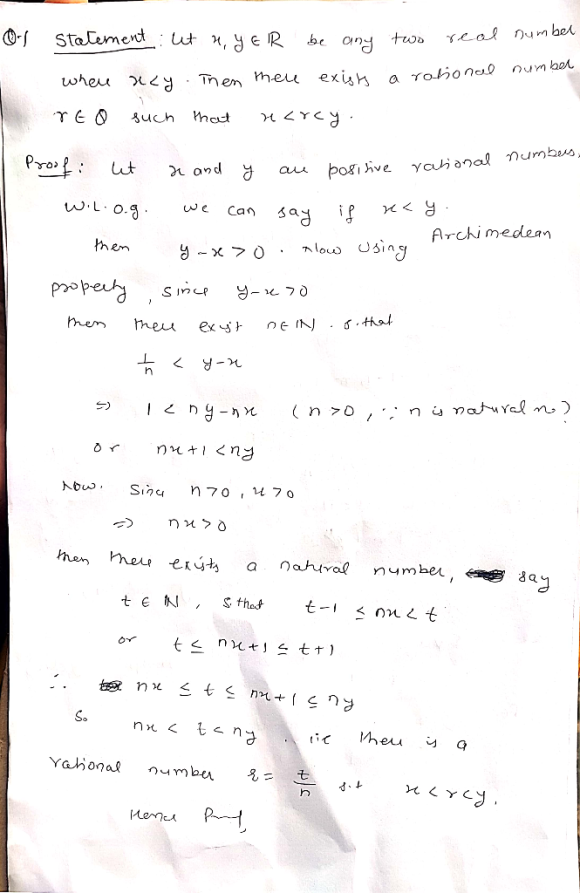 Q.1 Statement : Let x, y ∈ ℝ be any two real number
where x<y. Then there exists a rational number
r ∈ Q such that x < r < y.
Proof : Let x and y are positive rational numbers.
W.L.O.g. we can say if x < y.
then y - x > 0. Now Using Archimedean
property, since y-x >0
then there exist n ∈ ℕ. s.that
1/n < y-x
⇒ 1 < ny - nx (n >0, ∵ n is natural no)
or nx+1 < ny
Now. Since n >0, x >0
⇒ nx >0
then there exists a natural number, say
t ∈ ℕ, s.that t-1 ≤ nx < t
or t ≤ nx+1 ≤ t+1
∴ nx ≤ t ≤ nx+1 ≤ ny
So nx < t < ny. i.e there is a
rational number r = t/n s.t x < r < y.
Hence Proof